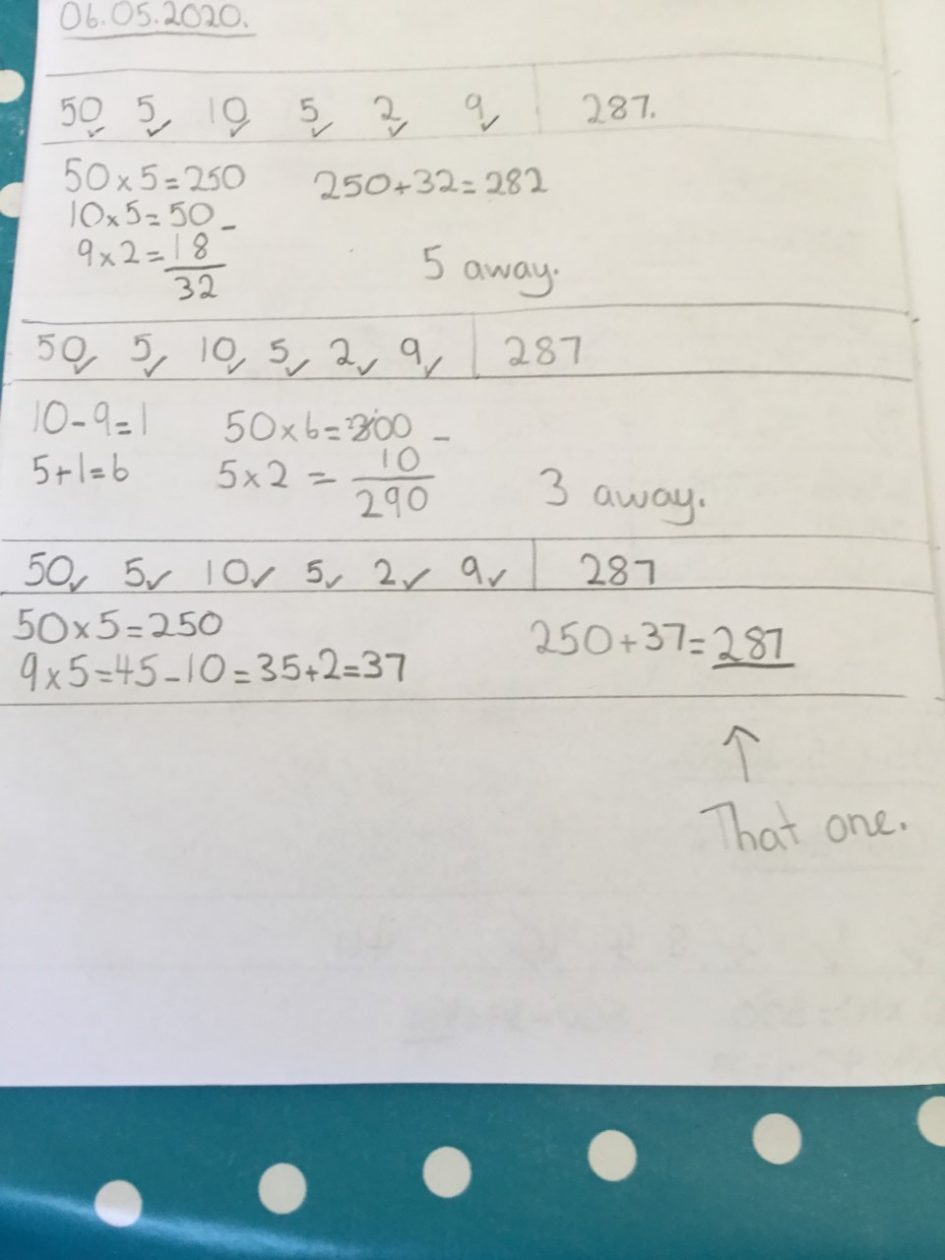 06.05.2020.
50 5 10 5 2 9 287.
50×5=250 250+32=282
10×5=50 -
9×2=18
32
5 away.
50 5 10 5 2 9 287
10-9=1 50×6=300 -
5+1=6 5×2 = 10
290
3 away.
50 5 10 5 2 9 287
50×5=250
9×5=45-10=35+2=37
250+37=287
↑
That one.